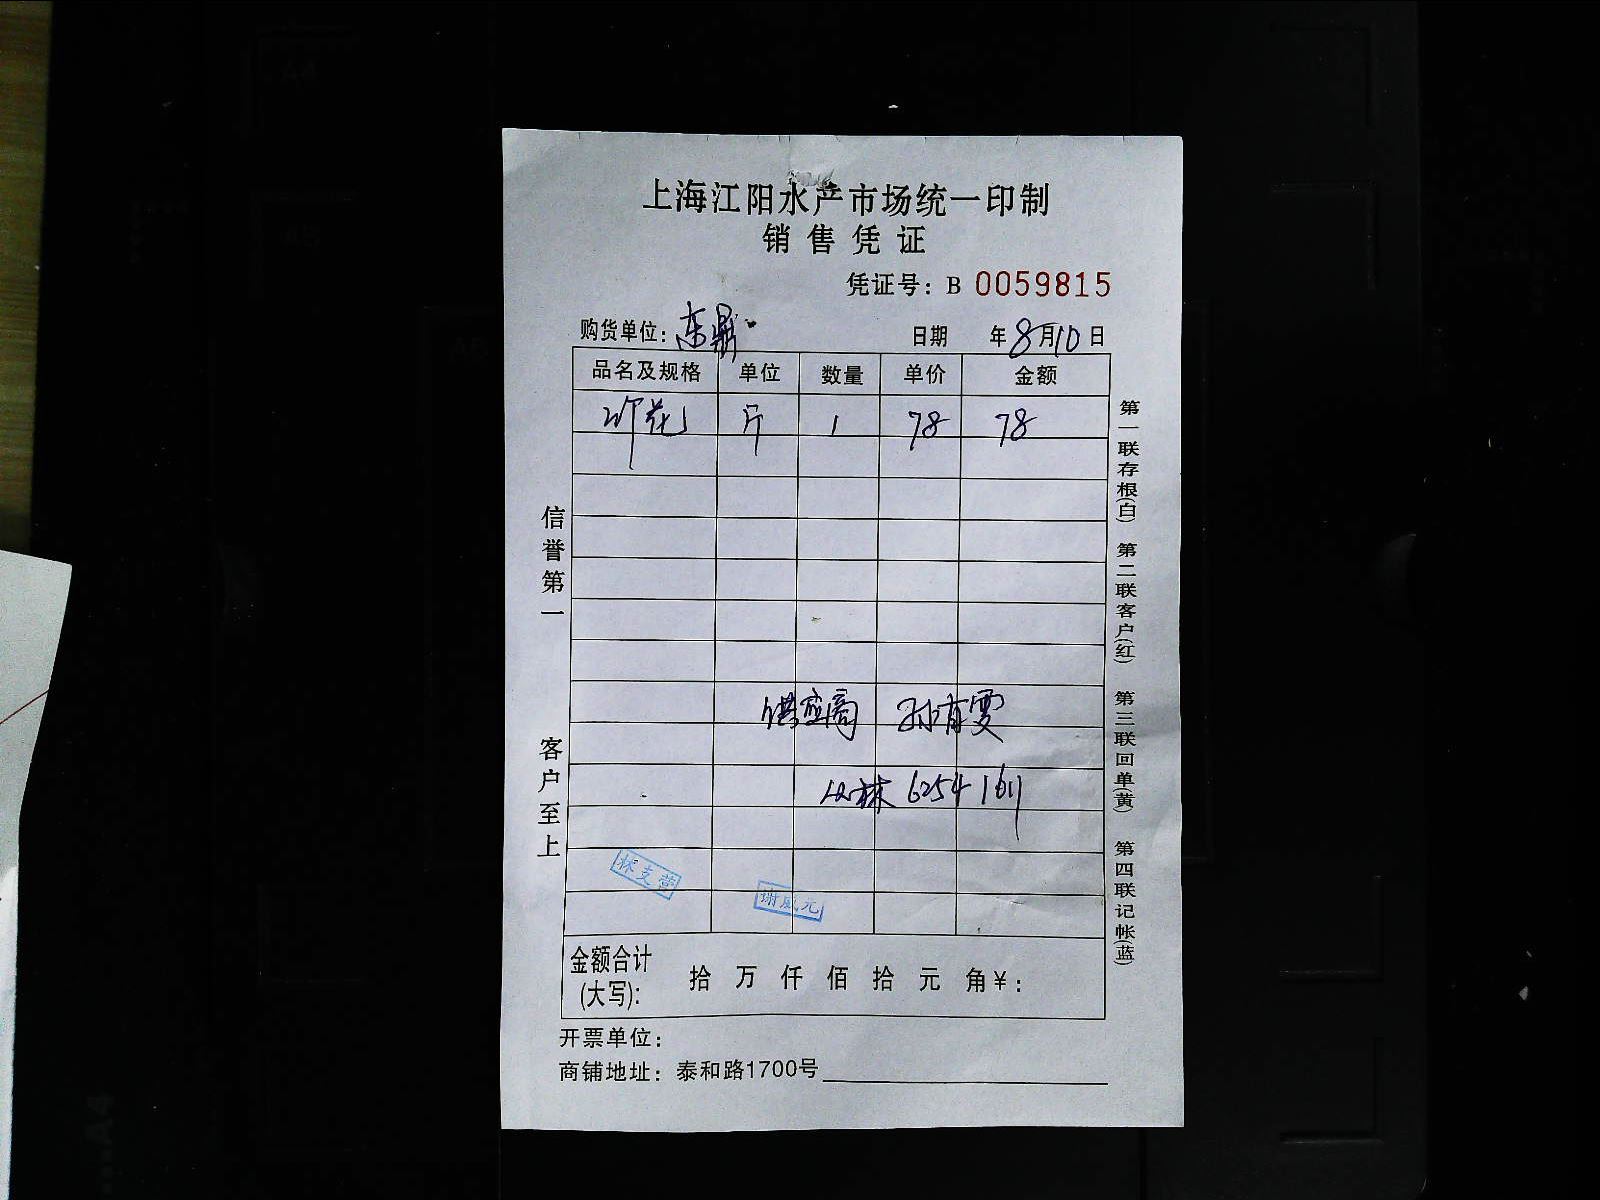 上海江阳水产市场统一印制
销售凭证
凭证号：B 0059815
购货单位：东鼎
日期 年8月10日
品名及规格 单位 数量 单价 金额
斤 1 78 78
供应商 孙有雯
6254 1611
金额合计(大写)： 拾 万 仟 佰 拾 元 角￥：
开票单位：
商铺地址：泰和路1700号
信誉第一 客户至上
第一联存根(白) 第二联客户(红) 第三联回单(黄) 第四联记帐(蓝)